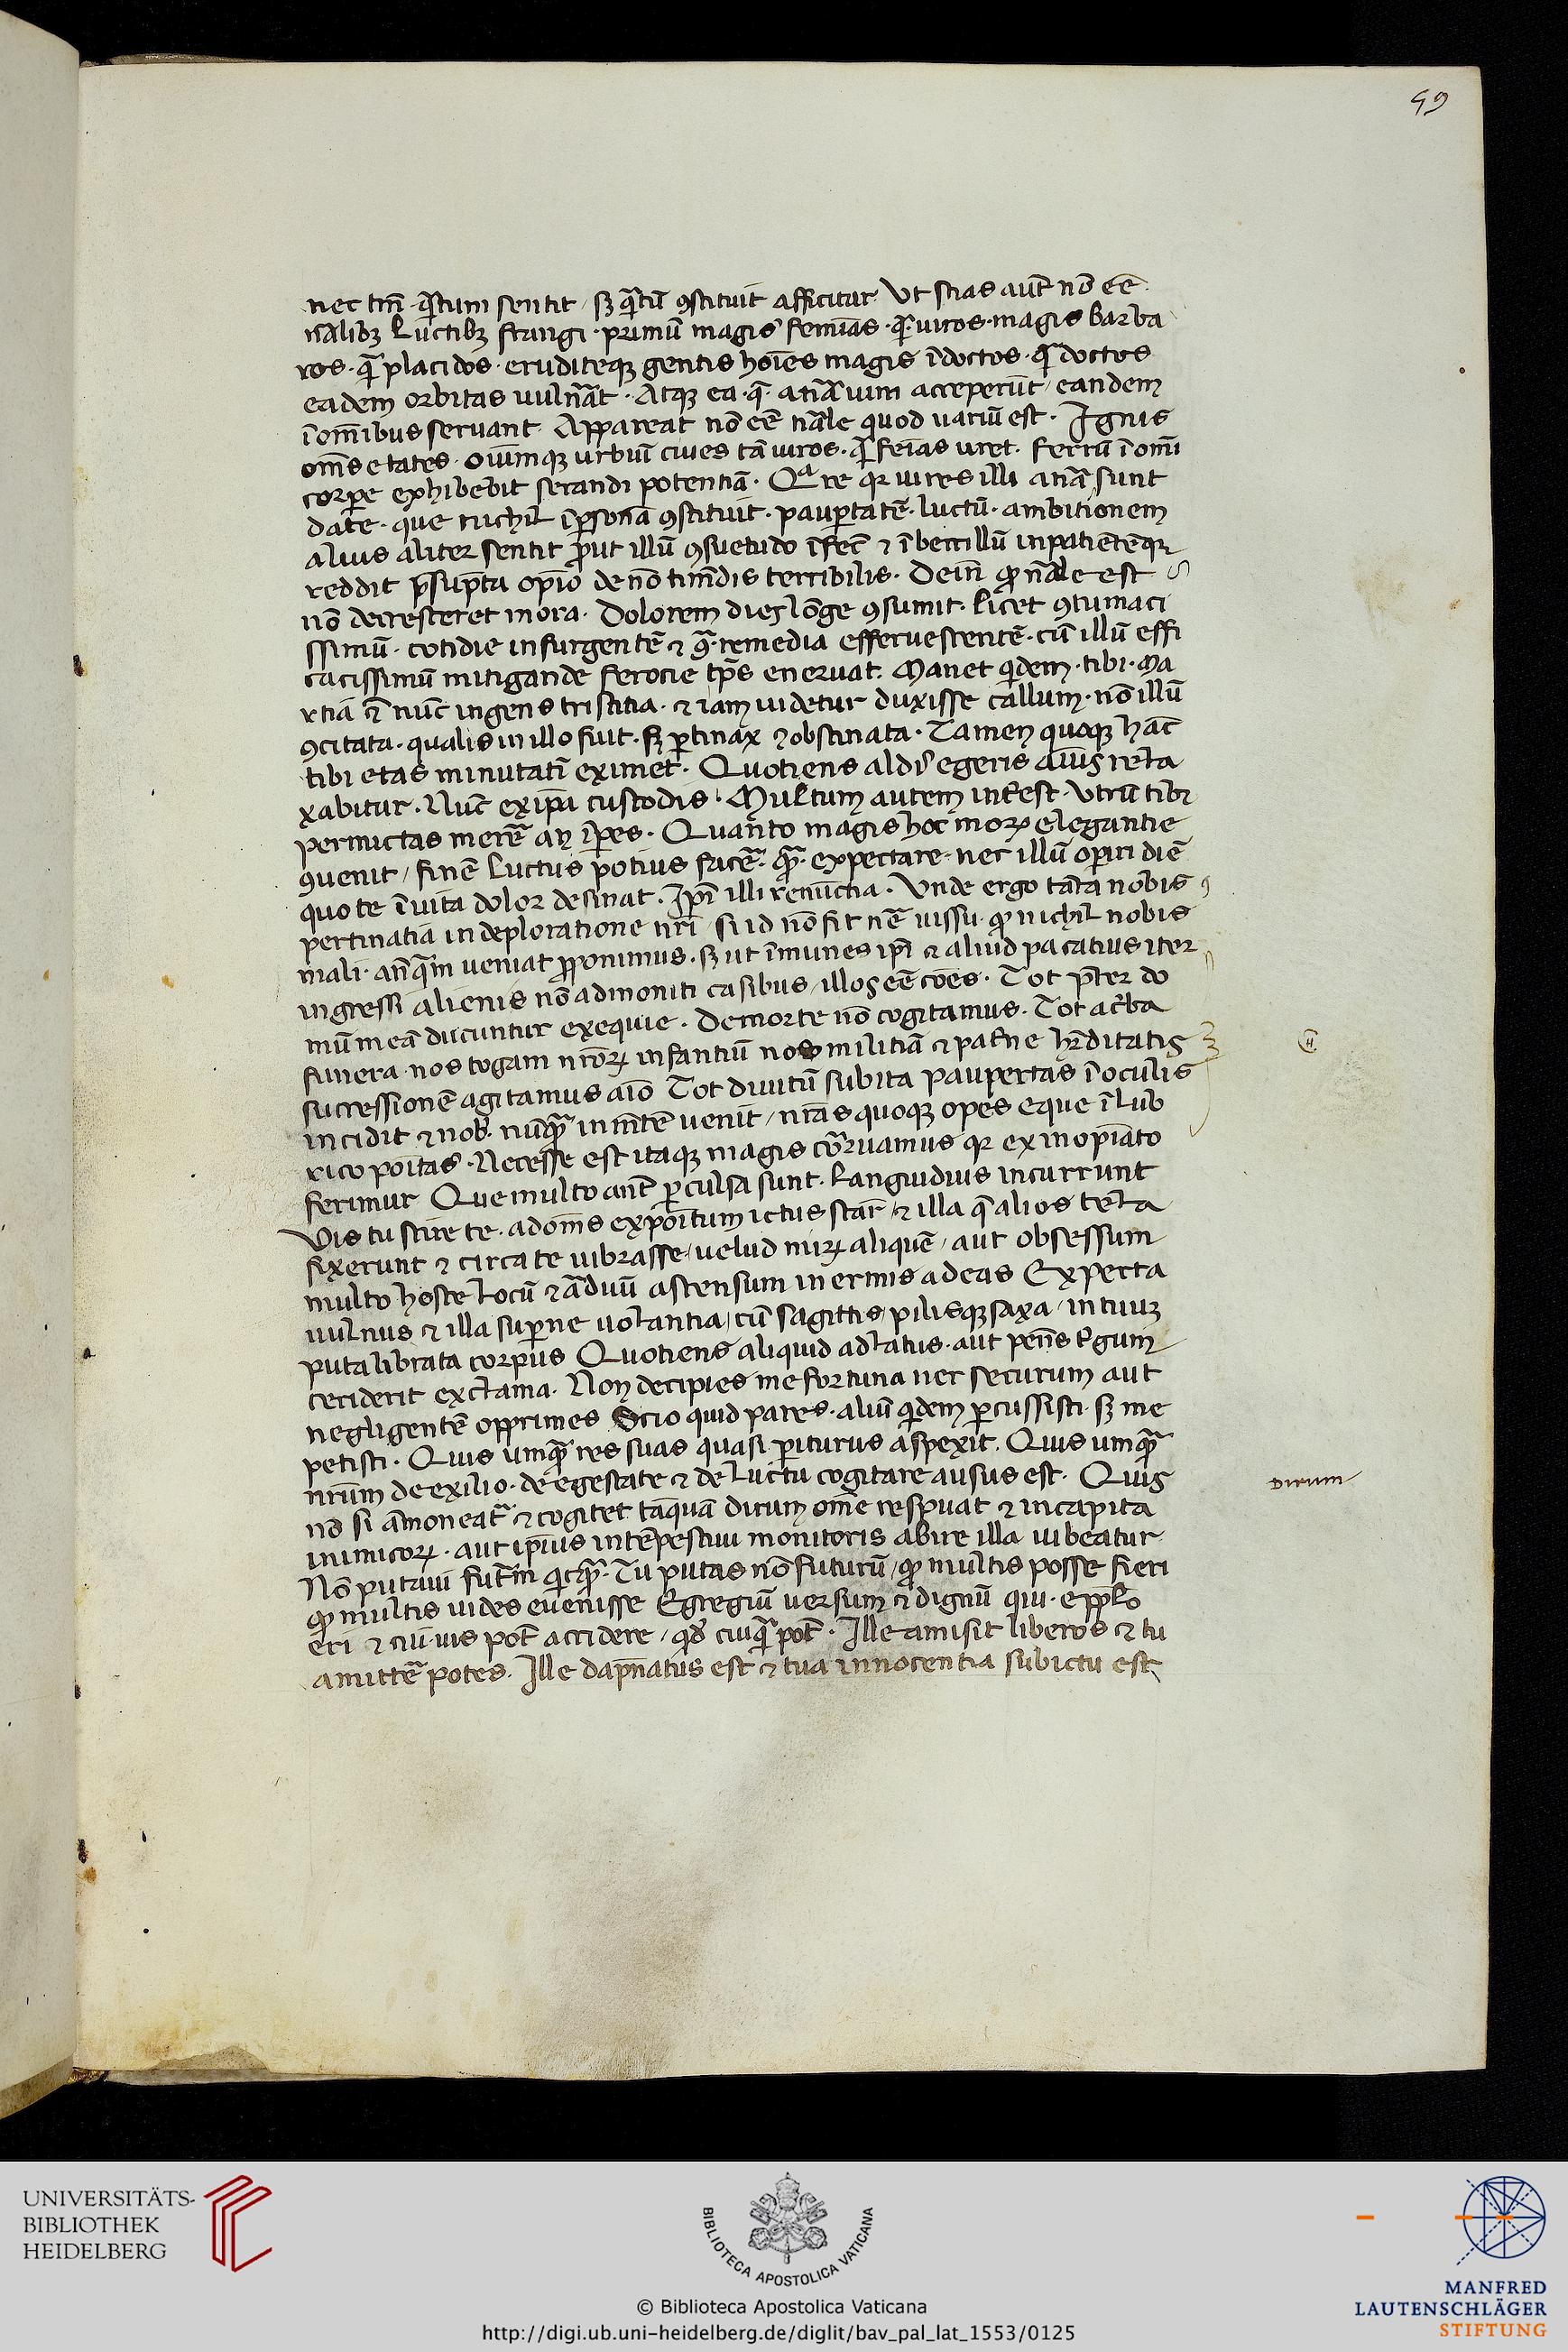 59
nec tm̄ · qͣtum sentit / sꝫ qͣtū ꝯstituit afficitur Ut scias aut̄ nō eē
nālibꝫ luctibꝫ frangi · primū magis femīas · qͣ · uiros · magis barba
ros · qͣ placidos · eruditeqꝫ gentis hoīes magis īdoctos · qͣ doctos
eadem orbitas uulnāt · Atqꝫ ea · q̄ · a nā uim acceperūt / eandem
ī om̄ibus seruant · Appareat nō eē nāle quod uariū est · Ignis
om̄s etates · oīumqꝫ urbiū ciues tā uiros · qͣ feīas uret · ferrū ī om̄i
corpe exhibebit secandi potentiā · Qͣre qꝛ uires illi a nā sunt
date · que nichil ī psona ꝯstituit · paupertatē · luctū · ambitionem
alius aliter sentit put illū ꝯsuetudo īfec̄ ⁊ ībecillū inpatiētēqꝫ
reddit p̄supta opīo de nō timēdis terribilis · Dein̄ qͦ nāle est
nō decresceret mora · Dolorem dies lōge ꝯsumit · licet ꝯtumaci
ssimū · cotidie insurgentē ⁊ ꝯͣ · remedia efferuescentē · cū illū effi
cacissimū mitigande ferocie tp̄s eneruat · Manet qͥdem · tibi · Ma
rtia ⁊ nūc ingens tristitia · ⁊ iam uidetur duxisse callum · nō illū
ꝯcitata · qualis in illo fuit · sꝫ ptinax ⁊ obstinata · Tamen quoqꝫ hāc
tibi etas minutatī eximet · Quotiens aldͥ egeris aīus rela
xabitur · Nūc ex ipā custodis · Multum autem int̄est · utrū tibi
permictas merē an īpes · Quanto magis hoc moꝝ elegantie
ꝯuenit / finē luctus potius facē · qͣ · expectare · nec illū opiri diē
quo te īuita dolor desinat · Ipī illi renūcia · Unde ergo tāta nobis
pertinatia in deploratione nr̄i / si id nō fit nē iussu · qͦ nichil nobis
mali · anqͣm ueniat pponimus · sꝫ ut īmunes ipī ⁊ aliud pacatius iter
ingressi alienis nō admoniti casibus / illos eē cōes · Tot p̄ter do
mū meā ducuntur exequie · De morte nō cogitamus · Tot ac̄ba
funera · nos togam nr̄oꝝ infantiū nos militiā ⁊ pat̄ne hr̄ditatis
successionē agitamus aīo Tot diuitū subita paupertas ī oculis
incidit ⁊ nob̄ · nūqͣ in mētē uenit / nr̄as quoqꝫ opes eque ī lub
rico poītas · Necesse est itaqꝫ magis corruamus qꝛ ex inopiāto
ferimur Que multo ant̄ pculsa sunt · languidius incurrunt
Vis tu scire te · ad om̄s expoītum ictus star̄ / ⁊ illa q̄ alios tela
fixerunt ⁊ circa te uibrasse / uelud miꝝ aliquē / aut obsessum
multo hoste locū ⁊ arduū ascensum inermis adeas Experta
uulnus ⁊ illa superne uolantia / cū sagittis / pilisqꝫ saxa / in tuuꝫ
puta librata corpus Quotiens aliquid ad latus · aut penēs t̄gum
ceciderit exclama · Non decipies me fortuna nec securum aut
negligentē opprimes Scio quid pares · aliū qͥdem percussisti · sꝫ me
petisti · Quis umqͣ res suas quasi periturus aspexit · Quis umqͣ
nr̄um de exilio · de egestate ⁊ de luctu cogitare ausus est · Quis
nō si āmoneatͬ ⁊ cogitet tāquā dirum om̄e respuat ⁊ in capita
inimicoꝝ · aut ipīus intēpestiui monitoris abire illa iubeatur
Nō putaui fut̄m qͥcqͣ · Tu putas nō futurū / qͦ multis posse fieri
qͦ multis uides euenisse Egregiū uersum ⁊ dignū qui ·
eri ⁊ cui · uis pot̄ accidere / qd̄ cuiqͣ pot̄ · Ille amisit liberos ⁊ tu
amittē potes · Ille dapnatus est ⁊ tua innocentia sub ictu est
Dirum
UNIVERSITÄTS-
BIBLIOTHEK
HEIDELBERG
BIBLIOTECA APOSTOLICA VATICANA
© Biblioteca Apostolica Vaticana
http://digi.ub.uni-heidelberg.de/diglit/bav_pal_lat_1553/0125
MANFRED
LAUTENSCHLÄGER
STIFTUNG